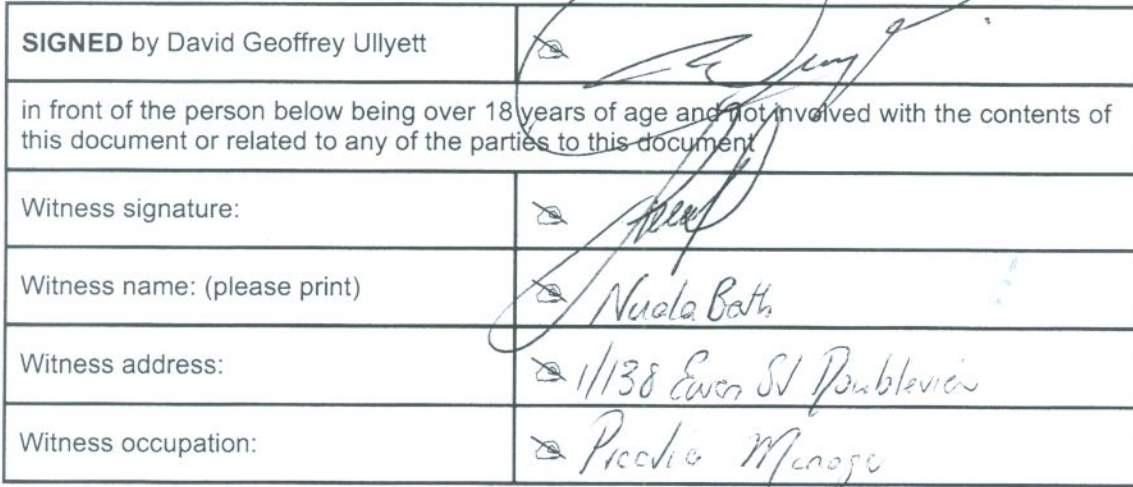 SIGNED by David Geoffrey Ullyett
in front of the person below being over 18 years of age and not involved with the contents of
this document or related to any of the parties to this document
Witness signature:
Witness name: (please print) Nuala Bath
Witness address: 1/138 Ewen St Doubleview
Witness occupation: Practice Manager